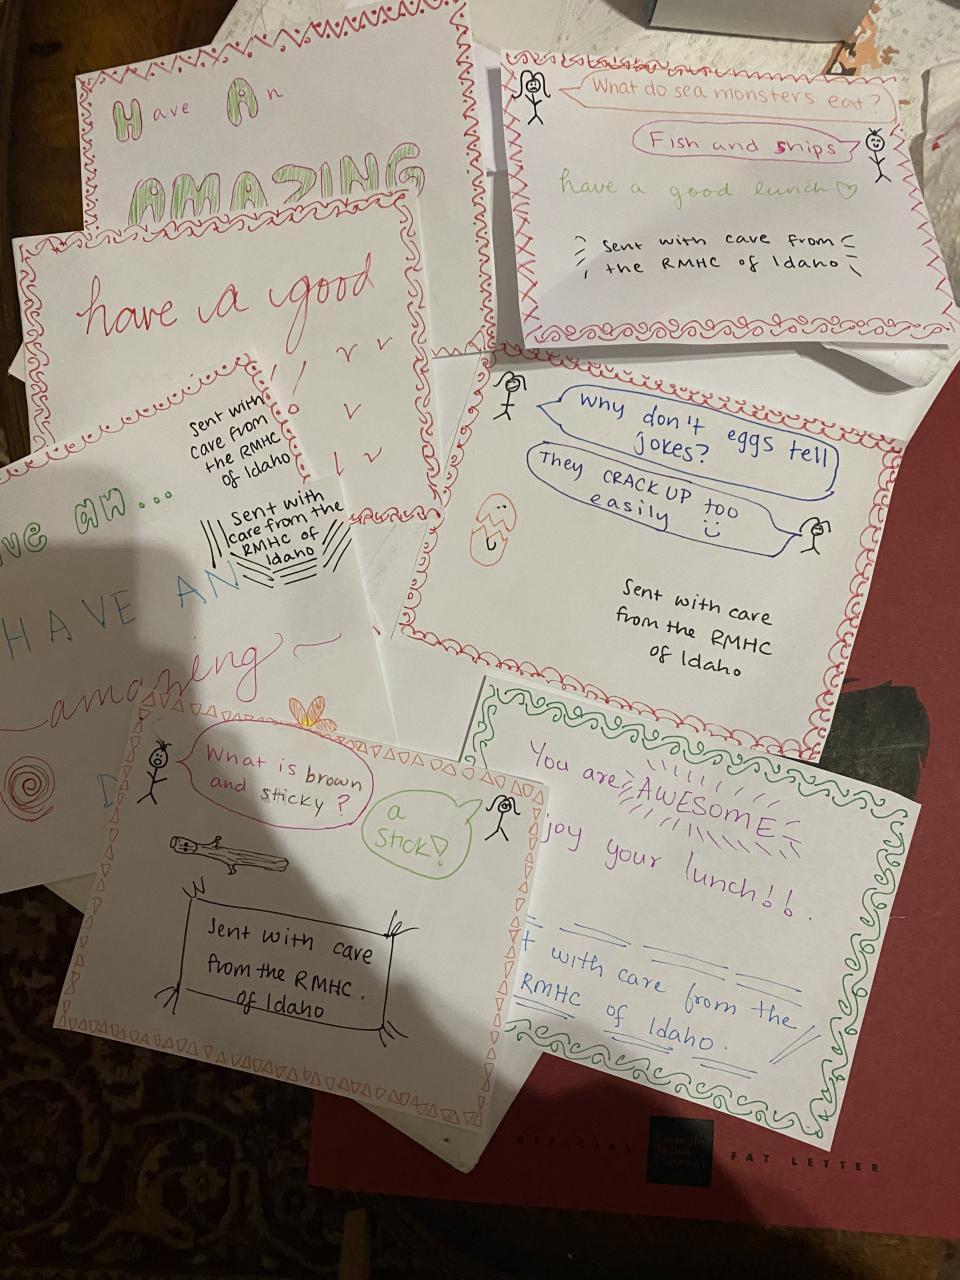 Have An
AMAZING
What do sea monsters eat?
Fish and ships
have a good lunch
Sent with care from
the RMHC of Idaho
have a good
Sent with
care from
the RMHC
of Idaho
an...
Sent with
care from the
RMHC of
Idaho
HAVE AN
amazing
D
Why don't eggs tell
jokes?
They CRACK UP too
easily
Sent with care
from the RMHC
of Idaho
What is brown
and sticky?
a
stick!
Sent with care
from the RMHC
of Idaho
You are AWESOME
your lunch!!
with care from the
RMHC of Idaho.
OFFICIAL
FAT LETTER